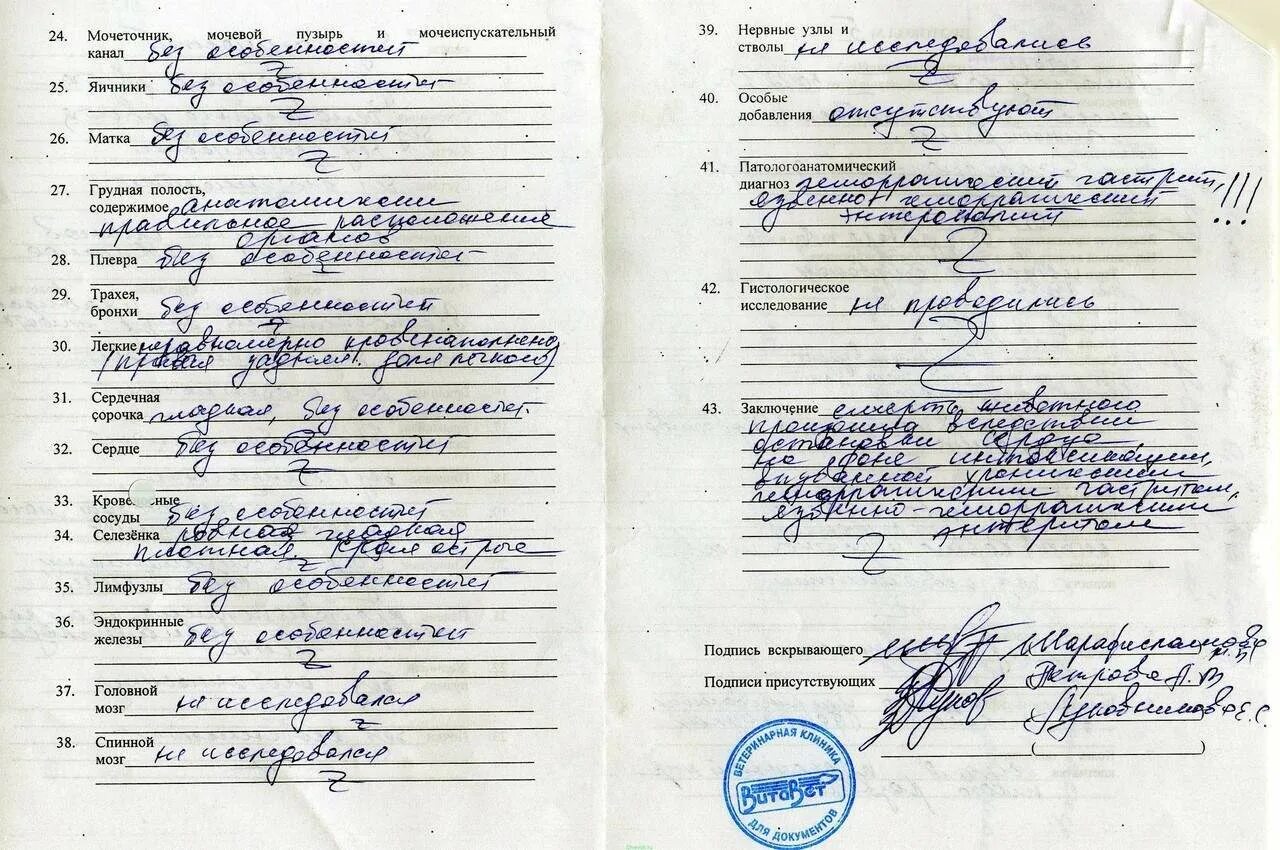 24. Мочеточник, мочевой пузырь и мочеиспускательный
канал без особенностей
25. Яичники без особенностей
26. Матка без особенностей
27. Грудная полость,
содержимое анатомически
правильное расположение
органов
28. Плевра без особенностей
29. Трахея,
бронхи без особенностей
30. Легкие неравномерно кровенаполнено
(правая задняя доля легкого)
31. Сердечная
сорочка гладкая, без особенностей
32. Сердце без особенностей
33. Крове ные
сосуды без особенностей
34. Селезёнка ровная гладкая
плотная. Края острые
35. Лимфузлы без особенностей
36. Эндокринные
железы без особенностей
37. Головной
мозг не исследовался
38. Спинной
мозг не исследовался
39. Нервные узлы и
стволы не исследовались
40. Особые
добавления отсутствуют
41. Патологоанатомический
диагноз геморрагический гастрит, !!!
язвенно-геморрагический
42. Гистологическое
исследование не проводились
43. Заключение смерть животного
произошла вследствии
остановки сердца
на фоне интоксикации,
вызванной хроническим
геморрагическим гастритом,
язвенно-геморрагическим
энтеритом
Подпись вскрывающего
Подписи присутствующих Петрова П.В
ВЕТЕРИНАРНАЯ КЛИНИКА
ВитаВет
ДЛЯ ДОКУМЕНТОВ